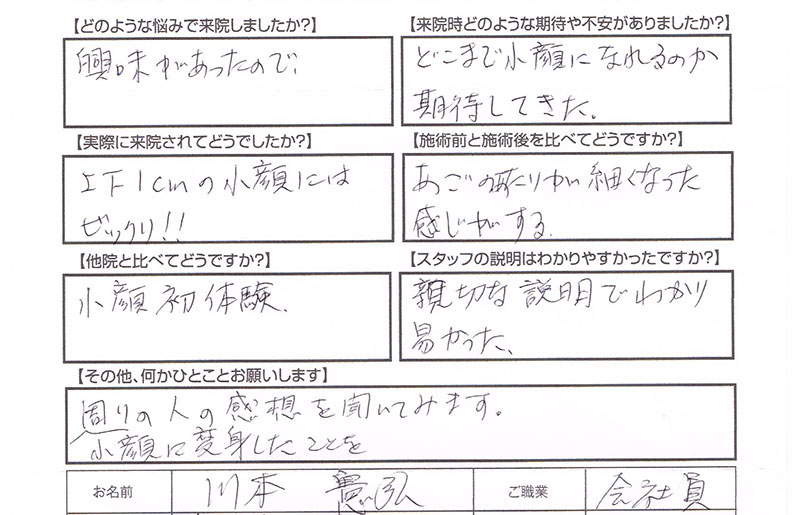 【どのような悩みで来院しましたか?】
興味があったので、
【来院時どのような期待や不安がありましたか?】
どこまで小顔になれるのか
期待してきた。
【実際に来院されてどうでしたか?】
上下1cmの小顔には
ビックリ!!
【施術前と施術後を比べてどうですか?】
あごの あたりが細くなった
感じがする.
【他院と比べてどうですか?】
小顔初体験.
【スタッフの説明はわかりやすかったですか?】
親切な説明でわかり
易かった、
【その他、何かひとことお願いします】
周りの人の感想を聞いてみます。
小顔に変身したことを
お名前
川本 憲弘
ご職業
会社員